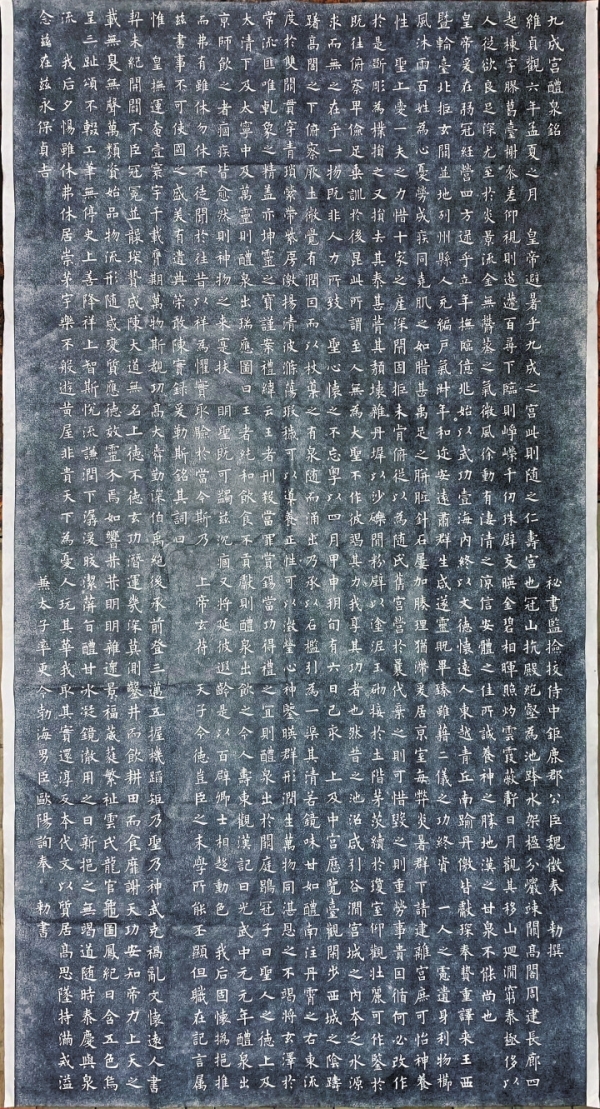 九成宮醴泉銘 秘書監檢校侍中鉅鹿郡公臣魏徵奉 勅撰
維貞觀六年孟夏之月 皇帝避暑乎九成之宮此則隨之仁壽宮也冠山抗殿絕壑為池跨水架楹分巖竦闕高閣周建長廊四
起棟宇膠葛臺榭參差仰視則迢遰百尋下臨則崢嶸千仞珠璧交暎金碧相暉照灼雲霞蔽虧日月觀其移山迴澗窮泰極侈以
人從欲良足深尤至於炎景流金無鬱蒸之氣微風徐動有淒清之涼信安體之佳所誠養神之勝地漢之甘泉不能尚也
皇帝爰在弱冠經營四方逮乎立年撫臨億兆始以武功壹海內終以文德懷遠人東越青丘南踰丹儌皆獻琛奉贄重譯來王西
暨輪臺北拒玄闕並地列州縣人充編戶氣淑年和邇安遠肅群生咸遂靈貺畢臻雖藉二儀之功終資 一人之慮遺身利物櫛
風沐雨百姓為心憂勞成疾同堯肌之如腊甚禹足之胼胝針石屢加腠理猶滯爰居京室每弊炎暑群下請建離宮庶可怡神養
性 聖上愛一夫之力惜十家之產深閉固拒未肯俯從以為隨氏舊宮營於曩代棄之則可惜毀之則重勞事貴因循何必改作
於是斲彫為樸損之又損去其泰甚葺其頹壞雜丹墀以沙礫間粉壁以塗泥玉砌接於土階茅茨續於瓊室仰觀壯麗可作鑒於
既往俯察卑儉足垂訓於後昆此所謂至人無為大聖不作彼竭其力我享其功者也然昔之池沼咸引谷澗宮城之內本乏水源
求而無之在乎一物既非人力所致 聖心懷之不忘粵以四月甲申朔旬有六日己亥 上及中宮歷覽臺觀閑步西城之陰躊
躇高閣之下俯察厥土微覺有潤因而以杖導之有泉隨而涌出乃承以石檻引為一渠其清若鏡味甘如醴南注丹霄之右東流
度於雙闕貫穿青瑣縈帶紫房激揚清波滌蕩瑕穢可以導養正性可以澂瑩心神鑒暎群形潤生萬物同湛恩之不竭將玄澤於
常流匪唯乾象之精蓋亦坤靈之寶謹案禮緯云王者刑殺當罪賞錫當功得禮之宜則醴泉出於闕庭鶡冠子曰聖人之德上及
太清下及太寧中及萬靈則醴泉出瑞應圖曰王者純和飲食不貢獻則醴泉出飲之令人壽東觀漢記曰光武中元元年醴泉出
京師飲之者痼疾皆愈然則神物之來寔扶 明聖既可蠲茲沉痼又將延彼遐齡是以百辟卿士相趨動色 我后固懷撝挹推
而弗有雖休勿休不徒聞於往昔以祥為懼實取驗於當今斯乃 上帝玄符 天子令德豈臣之末學所能丕顯但職在記言屬
茲書事不可使國之盛美有遺典策敢陳實錄爰勒斯銘其詞曰
惟 皇撫運奄壹寰宇千載膺期萬物斯覩功高大舜勤深伯禹絕後承前登三邁五握機蹈矩乃聖乃神武克禍亂文懷遠人書
契未紀開闢不臣冠冕並襲琛贄咸陳大道無名上德不德玄功潛運幾深莫測鑿井而飲耕田而食靡謝天功安知帝力上天之
載無臭無聲萬類資始品物流形隨感變質應德效靈介焉如響赫赫明明雜遝景福葳蕤繁祉雲氏龍官龜圖鳳紀日含五色烏
呈三趾頌不輟工筆無停史上善降祥上智斯悅流謙潤下潺湲皎潔蓱旨醴甘冰凝鏡澈用之日新挹之無竭道隨時泰慶與泉
流 我后夕惕雖休弗休居崇茅宇樂不般遊黃屋非貴天下為憂人玩其華我取其實還淳反本代文以質居高思墜持滿戒溢
念茲在茲永保貞吉 兼太子率更令勃海男臣歐陽詢奉 勅書